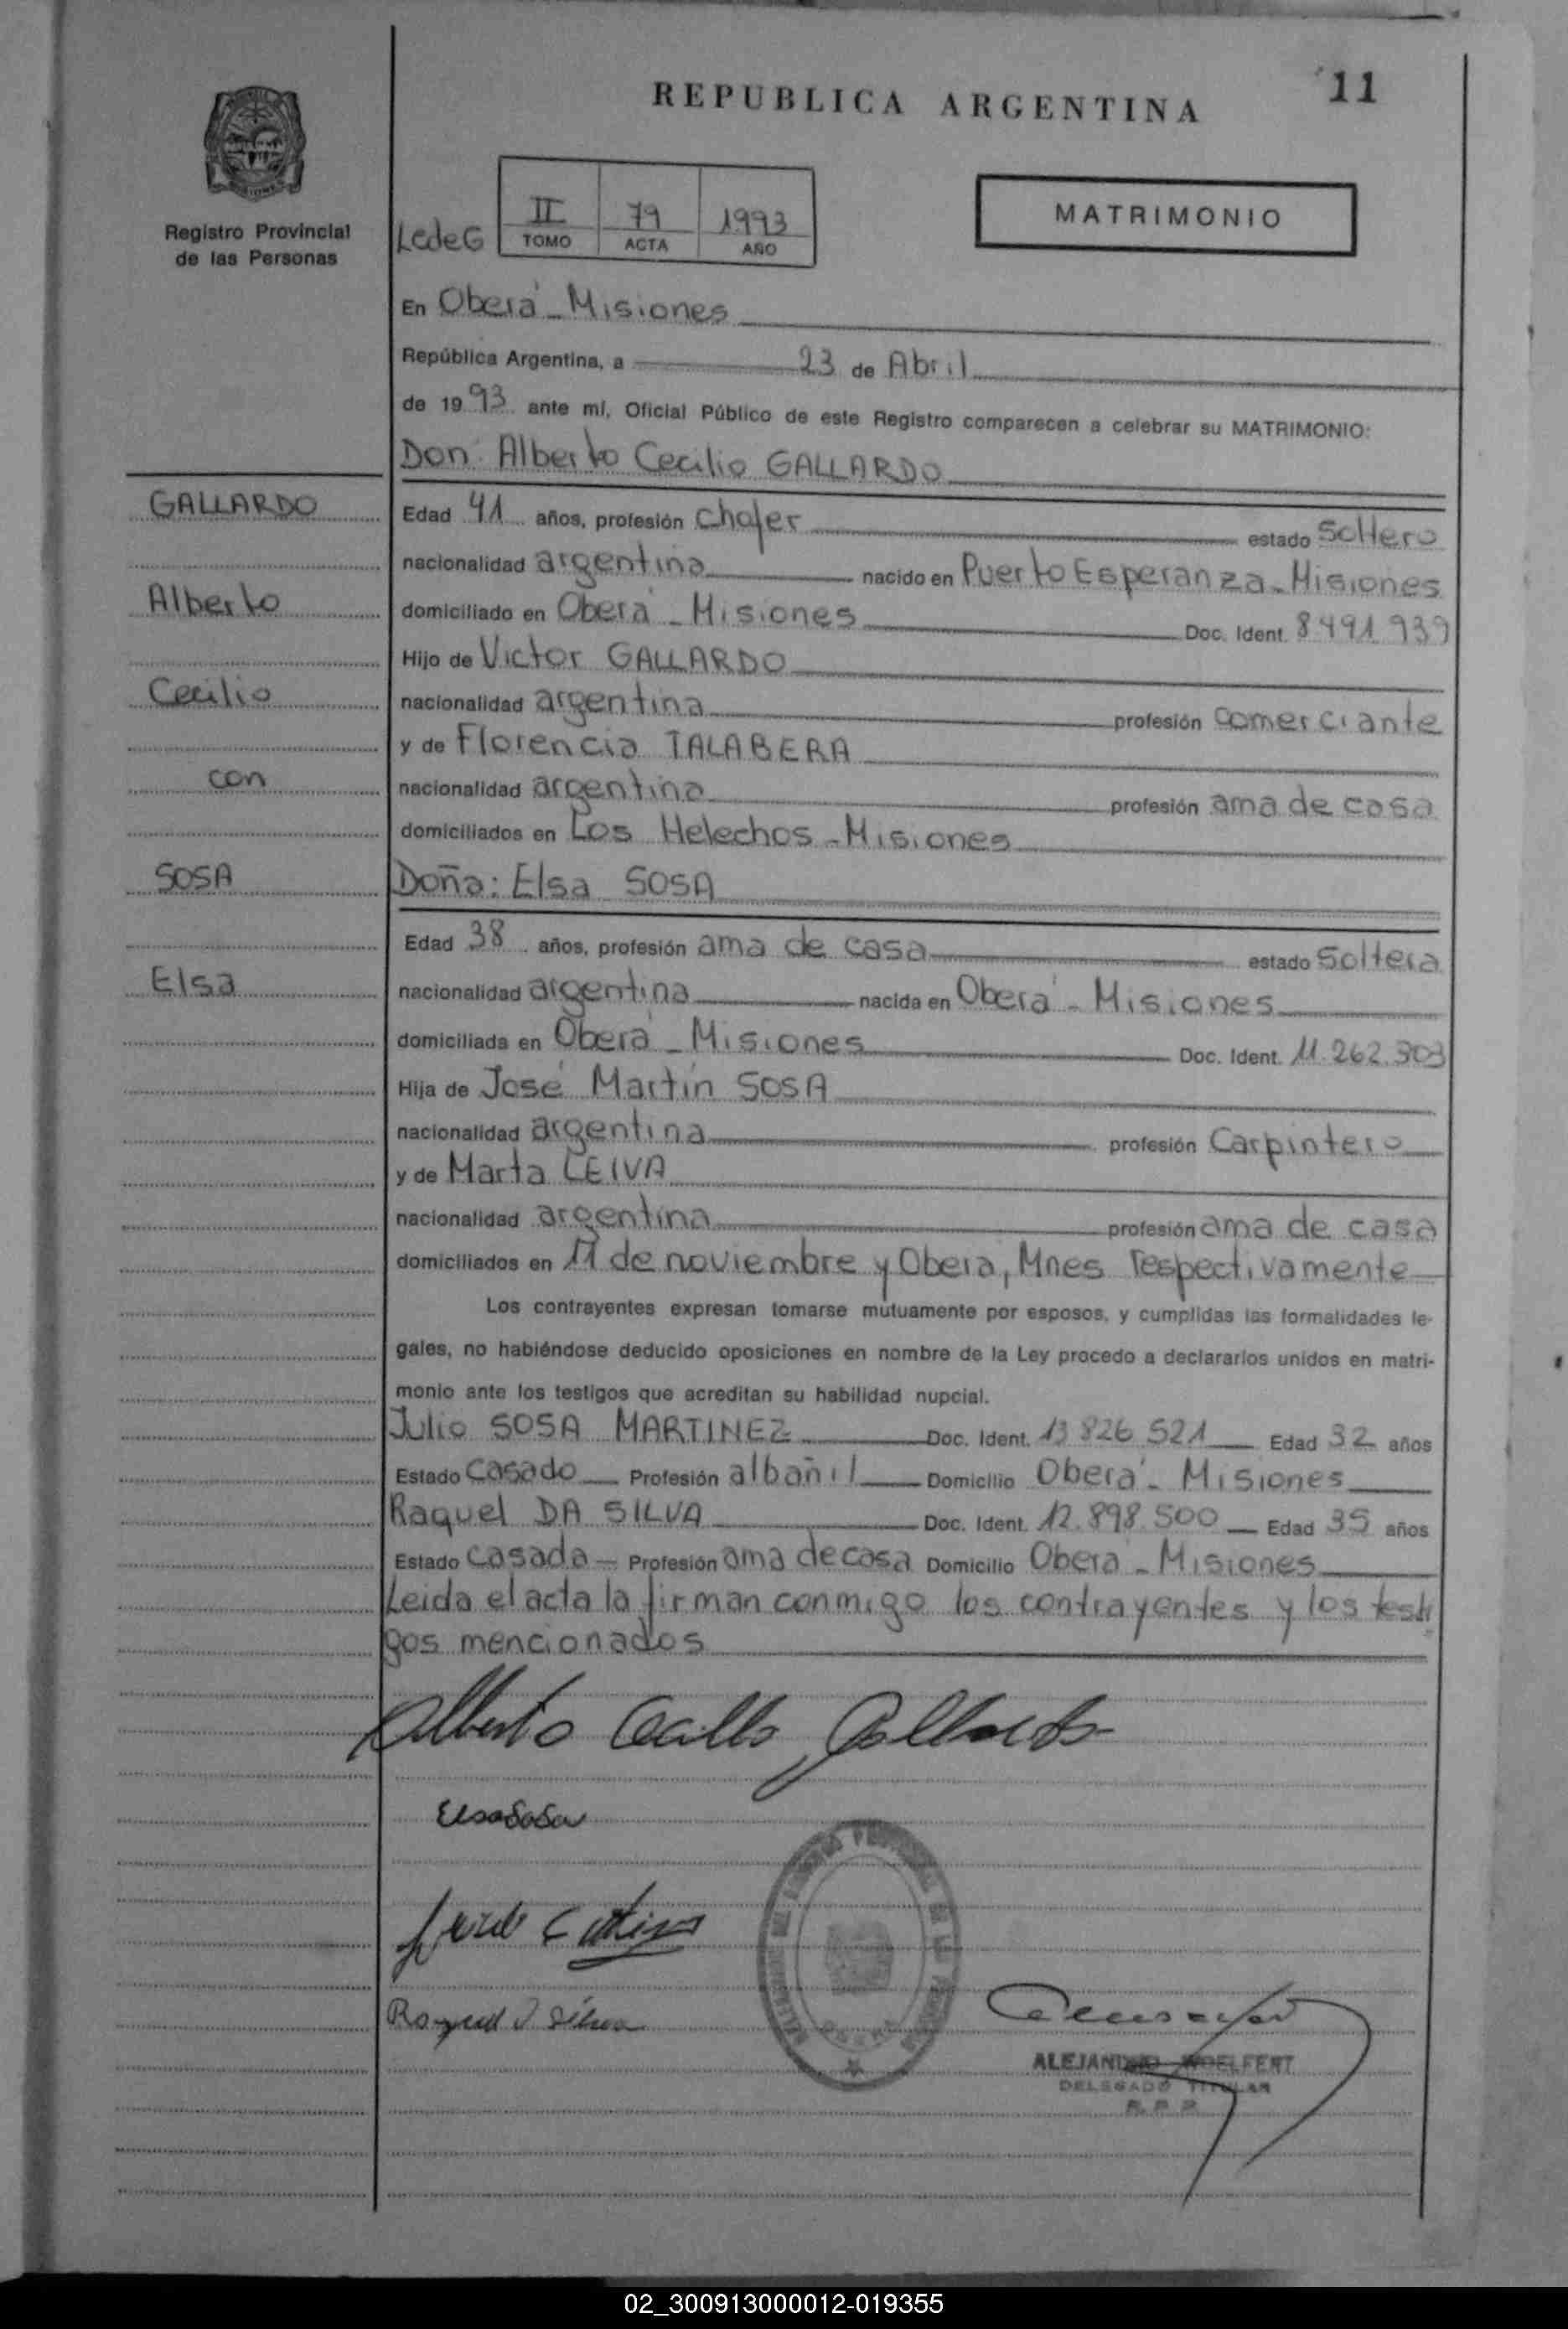 11
REPUBLICA ARGENTINA
Registro Provincial
de las Personas
MATRIMONIO
LcdeG
II 79 1993
TOMO ACTA AÑO
En Oberá - Misiones
República Argentina, a 23 de Abril
de 1993 ante mí, Oficial Público de este Registro comparecen a celebrar su MATRIMONIO:
Don: Alberto Cecilio GALLARDO
GALLARDO
Alberto
Cecilio
con
SOSA
Elsa
Edad 41 años, profesión Chofer estado Soltero
nacionalidad argentina nacido en Puerto Esperanza - Misiones
domiciliado en Oberá - Misiones Doc. Ident. 8491939
Hijo de Victor GALLARDO
nacionalidad argentina profesión Comerciante
y de Florencia TALABERA
nacionalidad argentina profesión ama de casa
domiciliados en Los Helechos - Misiones
Doña: Elsa SOSA
Edad 38 años, profesión ama de casa estado Soltera
nacionalidad argentina nacida en Oberá - Misiones
domiciliada en Oberá - Misiones Doc. Ident. 11.262.303
Hija de José Martín SOSA
nacionalidad argentina profesión Carpintero
y de Marta LEIVA
nacionalidad argentina profesión ama de casa
domiciliados en 11 de noviembre y Oberá, Mnes respectivamente
Los contrayentes expresan tomarse mutuamente por esposos, y cumplidas las formalidades le-
gales, no habiéndose deducido oposiciones en nombre de la Ley procedo a declararlos unidos en matri-
monio ante los testigos que acreditan su habilidad nupcial.
Julio SOSA MARTINEZ Doc. Ident. 13826521 Edad 32 años
Estado Casado Profesión albañil Domicilio Oberá - Misiones
Raquel DA SILVA Doc. Ident. 12.898.500 Edad 35 años
Estado Casada Profesión ama de casa Domicilio Oberá - Misiones
Leida el acta la firman conmigo los contrayentes y los testi
gos mencionados
Alberto Cecilio Gallardo
Elsa Sosa
Raquel D Silva
ALEJANDRO WOELFERT
DELEGADO TITULAR
R. P. P.
02_300913000012-019355